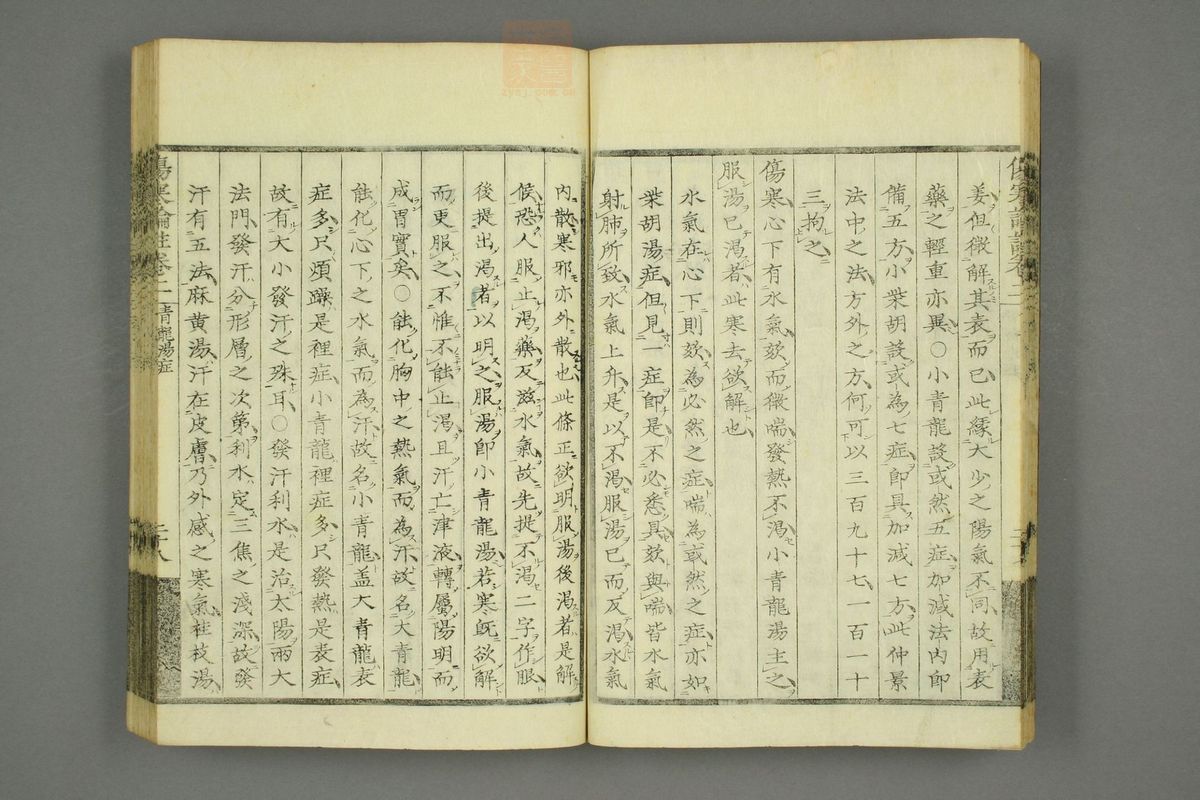 姜但微解其表而已此緣大少之陽氣不同故用表
藥之輕重亦異○小青龍設或然五症加減法內即
備五方小柴胡設或為七症即具加減七方此仲景
法中之法方外之方何可以三百九十七一百一十
三拘之
傷寒心下有水氣欬而微喘發熱不渴小青龍湯主之
服湯已渴者此寒去欲解也
水氣在心下則欬為必然之症喘為或然之症亦如
柴胡湯症但見一症即是不必悉具欬與喘皆水氣
射肺所致水氣上升是以不渴服湯已而反渴水氣
內散寒邪亦外散也此條正欲明服湯後渴者是解
候恐人服止渴藥反滋水氣故先提不渴二字作眼
後提出渴者以明之服湯即小青龍湯若寒既欲解
而更服之不惟不能止渴且汗亡津液轉屬陽明而
成胃實矣○能化胸中之熱氣而為汗故名大青龍
能化心下之水氣而為汗故名小青龍盖大青龍表
症多只煩躁是裡症小青龍裡症多只發熱是表症
故有大小發汗之殊耳○發汗利水是治太陽兩大
法門發汗分形層之次第利水定三焦之淺深故發
汗有五法麻黃湯汗在皮膚乃外感之寒氣桂枝湯
傷寒論註卷二 青龍湯症
二十八
zysj.com.cn